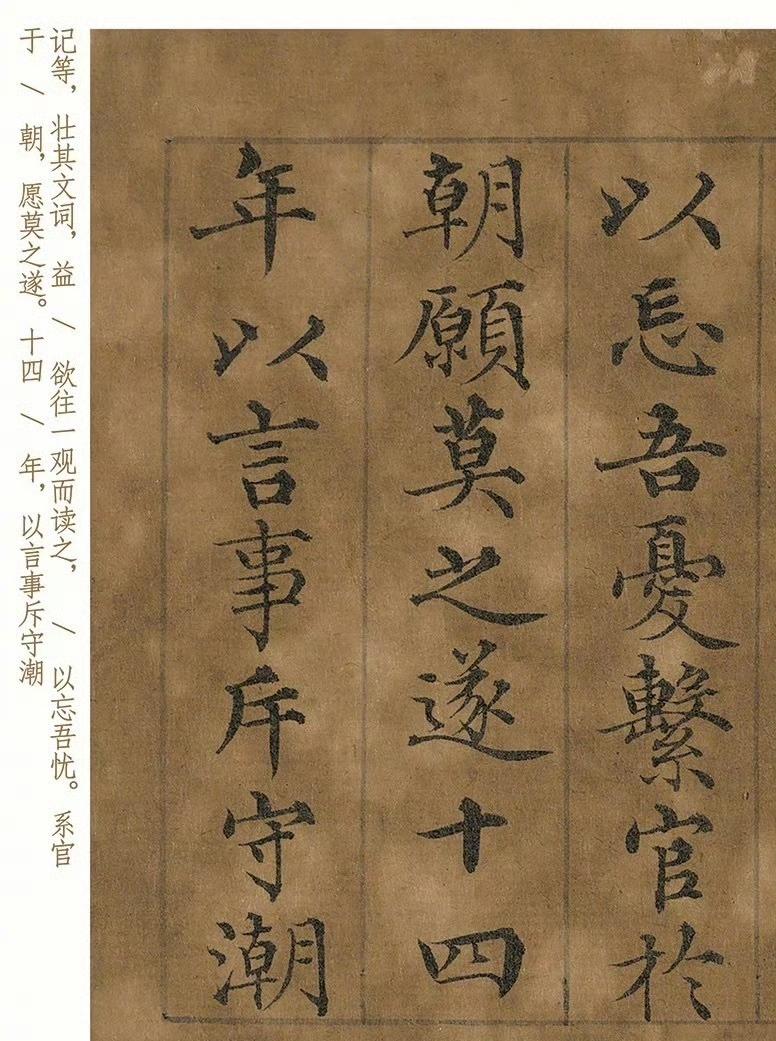 记等，壮其文词，益 / 欲往一观而读之， / 以忘吾忧。系官
于 / 朝，愿莫之遂。十四 / 年，以言事斥守潮
以忘吾憂繫官於
朝願莫之遂十四
年以言事斥守潮